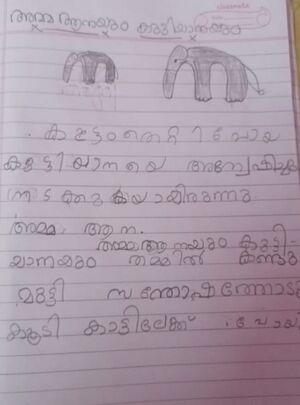 അമ്മ ആനയും കുട്ടിയാനയും
classmate
കൂട്ടം തെറ്റി പോയ
കുട്ടിയാനയെ അന്വേഷിച്ചു
നടക്കുകയായിരുന്നു.
അമ്മ ആന.
അമ്മആനയും കുട്ടി-
യാനയും തമ്മിൽ കണ്ടു
മുട്ടി സന്തോഷത്തോടു
കൂടി കാട്ടിലേക്ക് പോയി